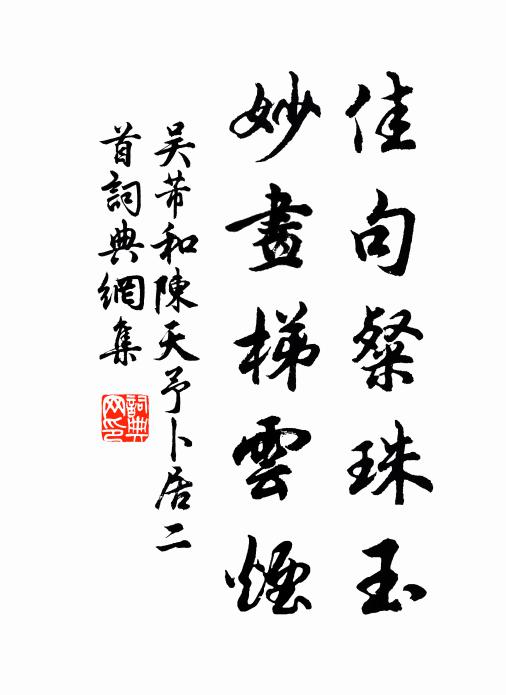 佳句粲珠玉
妙畫梯雲煙
吴芾和陳天予卜居二
首詞典網集
詞典
网印